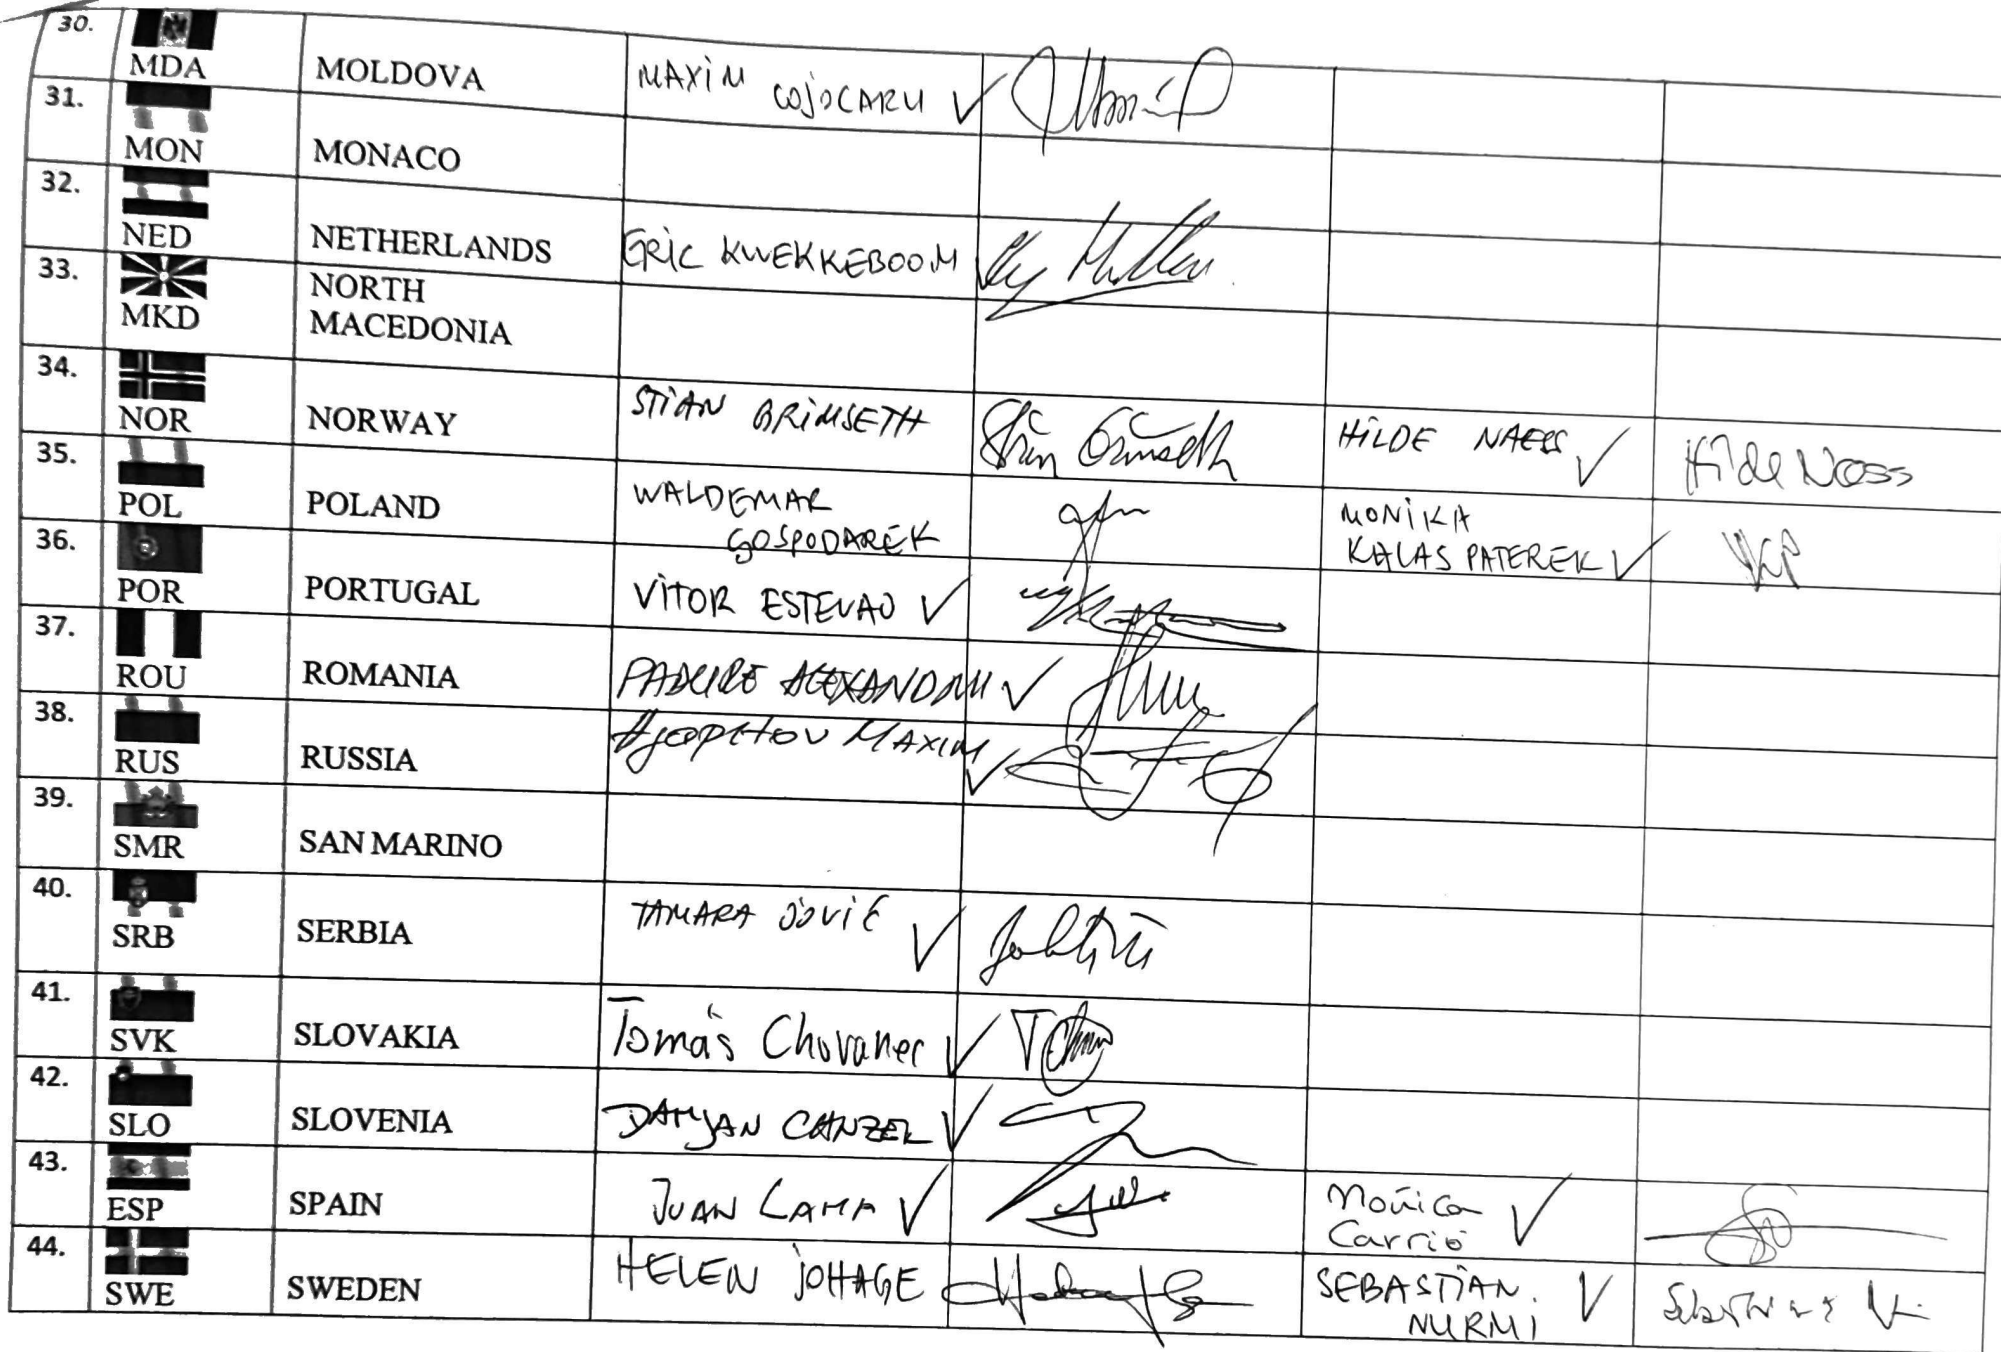 30. MDA MOLDOVA MAXIM COJOCARU
31. MON MONACO
32. NED NETHERLANDS ERIC KWEKKEBOOM
33. MKD NORTH
MACEDONIA
34. NOR NORWAY STIAN GRIMSETH Stian Grimseth HILDE NAESS Hilde Næss
35. POL POLAND WALDEMAR
GOSPODAREK
MONIKA
KALAS PATEREK
36. POR PORTUGAL VITOR ESTEVAO
37. ROU ROMANIA PADURE ALEXANDRU
38. RUS RUSSIA MAXIM
39. SMR SAN MARINO
40. SRB SERBIA TAMARA
41. SVK SLOVAKIA Tomáš Chovanec
42. SLO SLOVENIA DAMJAN
43. ESP SPAIN JUAN LAMA
Mónica
Carrió
44. SWE SWEDEN HELEN JOHAGE
SEBASTIAN
NURMI